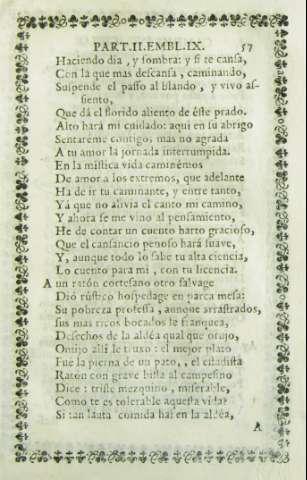 PART.II.EMBL.IX. 57
Haciendo dia, y sombra: y si te cansa,
Con la que mas descansa, caminando,
Suspende el passo al blando, y vivo as-
siento,
Que dá el florido aliento de éste prado.
Alto hará mi cuidado: aqui en su abrigo
Sentaréme contigo, mas no agrada
A tu amor la jornada interrumpida.
En la mistica vida caminémos
De amor a los extremos, que adelante
Ha de ir tu caminante, y entre tanto,
Yá que no alivia el canto mi camino,
Y ahora se me vino al pensamiento,
He de contar un cuento harto gracioso,
Que el cansancio penoso hará suave,
Y, aunque todo lo sabe tu alta ciencia,
Lo cuento para mi, con tu licencia.
A un ratón cortesano otro salvage
Dió rústico hospedage en parca mesa:
Su pobreza professa, aunque arrastrados,
sus mas ricos bocados le franquea,
Desechos de la aldéa qual que orujo,
Quijo allí le truxo: el mejor plato
Fue la pierna de un pato, el ciudadista
Ratón con grave vista al campesino
Dice: triste mezquino, miserable,
Como te es tolerable aquesta vida?
Si tan lauta comida hai en la aldéa,
A